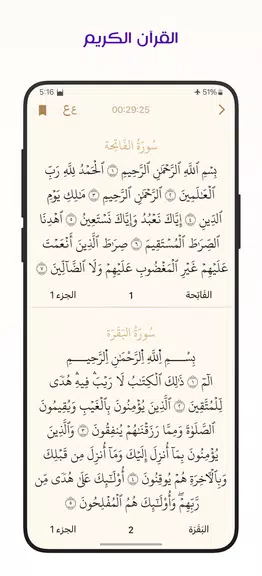 القرآن الكريم
5:16
51%
عع
00:29:25
سُورَةُ الفَاتِحَةِ
بِسْمِ ٱللَّهِ ٱلرَّحْمَٰنِ ٱلرَّحِيمِ ١ ٱلْحَمْدُ لِلَّهِ رَبِّ
ٱلْعَٰلَمِينَ ٢ ٱلرَّحْمَٰنِ ٱلرَّحِيمِ ٣ مَٰلِكِ يَوْمِ
ٱلدِّينِ ٤ إِيَّاكَ نَعْبُدُ وَإِيَّاكَ نَسْتَعِينُ ٥ ٱهْدِنَا
ٱلصِّرَٰطَ ٱلْمُسْتَقِيمَ ٦ صِرَٰطَ ٱلَّذِينَ أَنْعَمْتَ
عَلَيْهِمْ غَيْرِ ٱلْمَغْضُوبِ عَلَيْهِمْ وَلَا ٱلضَّآلِّينَ ٧
الفَاتِحة 1 الجزء ١
سُورَةُ البَقَرَةِ
بِسْمِ ٱللَّهِ ٱلرَّحْمَٰنِ ٱلرَّحِيمِ
الٓمٓ ١ ذَٰلِكَ ٱلْكِتَٰبُ لَا رَيْبَۛ فِيهِۛ هُدًى
لِّلْمُتَّقِينَ ٢ ٱلَّذِينَ يُؤْمِنُونَ بِٱلْغَيْبِ وَيُقِيمُونَ
ٱلصَّلَوٰةَ وَمِمَّا رَزَقْنَٰهُمْ يُنفِقُونَ ٣ وَٱلَّذِينَ
يُؤْمِنُونَ بِمَآ أُنزِلَ إِلَيْكَ وَمَآ أُنزِلَ مِن قَبْلِكَ
وَبِٱلْأَخِرَةِ هُمْ يُوقِنُونَ ٤ أُو۟لَٰٓئِكَ عَلَىٰ هُدًى مِّن
رَّبِّهِمْۖ وَأُو۟لَٰٓئِكَ هُمُ ٱلْمُفْلِحُونَ ٥
البَقَرَة 2 الجزء ١